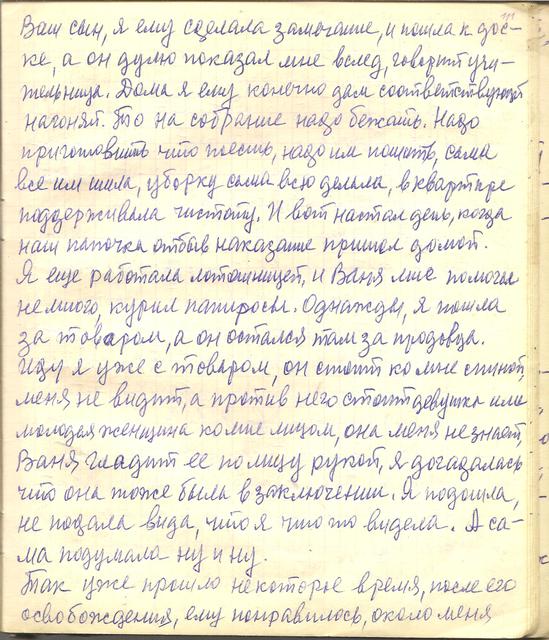 Ваш сын, я ему сделала замечание, и пошла к дос-
ке, а он дулю показал мне вслед, говорит учи-
тельница. Дома я ему конечно дам соответствующий
нагоняй. То на собрание надо бежать. Надо
приготовить что поесть, надо им пошить, сама
все им шила, уборку сама всю делала, в квартире
поддерживала чистоту. И вот настал день, когда
наш папочка отбыв наказание пришол домой.
Я еще работала лотошницей, и Ваня мне помогал
немного, курил папиросы. Однажды, я пошла
за товаром, а он остался там за продовца.
Иду я уже с товаром, он стоит ко мне спиной,
меня не видит, а против него стоит девушка или
молодая женщина ко мне лицом, она меня не знает,
Ваня гладит ее по лицу рукой, я догадалась
что она тоже была в заключении. Я подошла,
не подала вида, что я что то видела. А са-
ма подумала ну и ну.
Так уже прошло некоторое время, после его
освобождения, ему понравилось, около меня